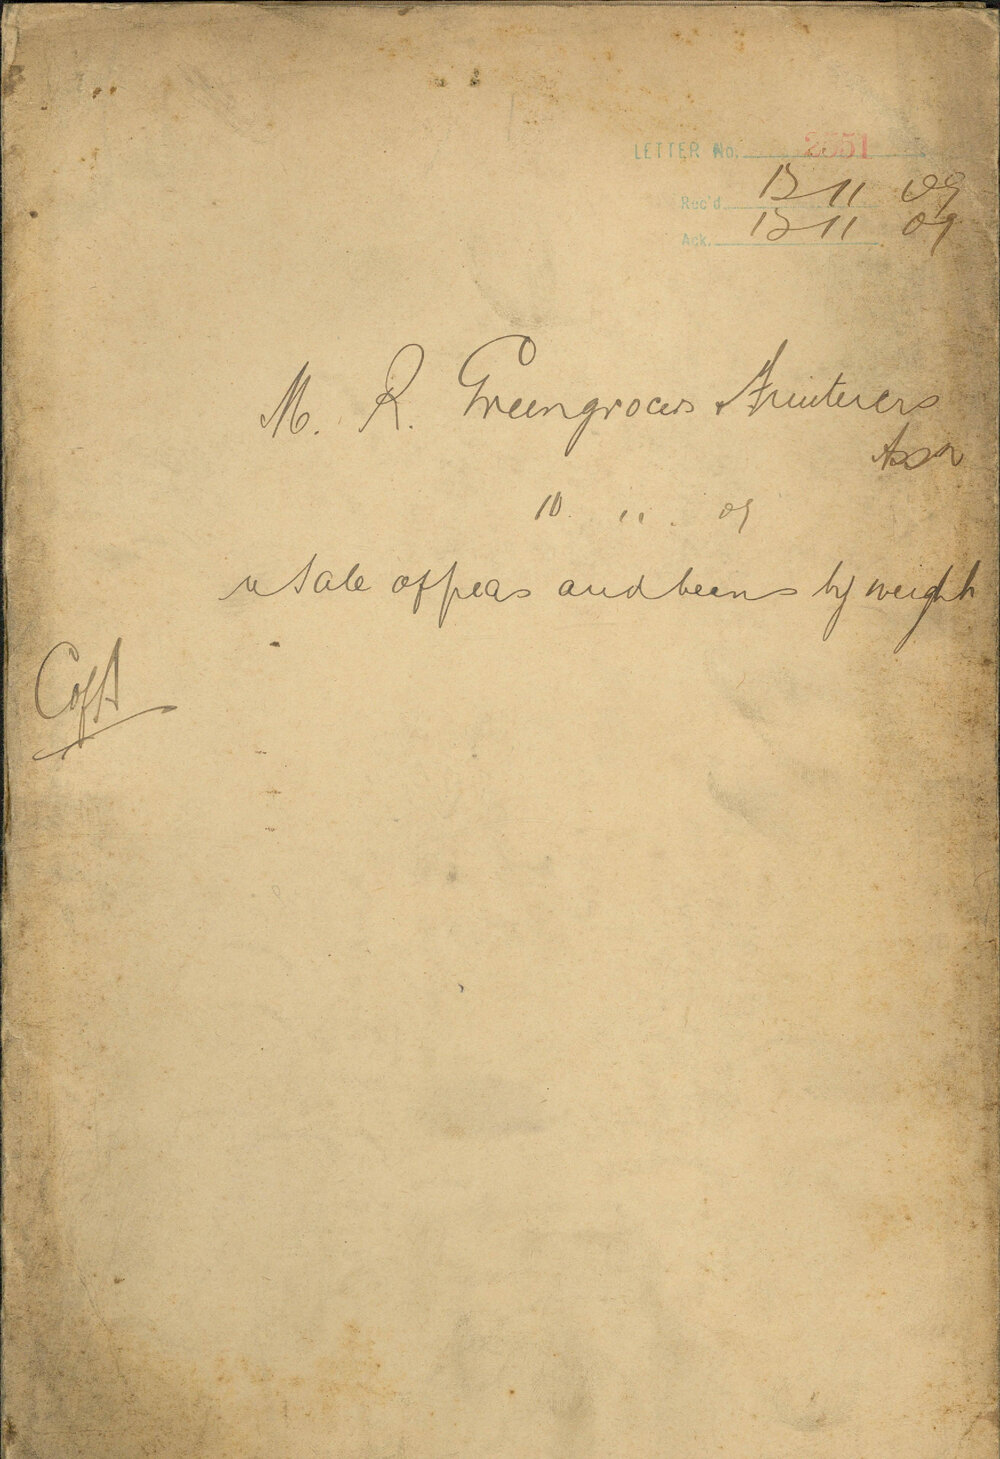 LETTER No. 2551
Rec'd 13 11 09
Ack. 13 11 09
M. R. Greengrocers & Fruiterers
Assn
10. 11. 09
re Sale of peas and beans by weight
C of A